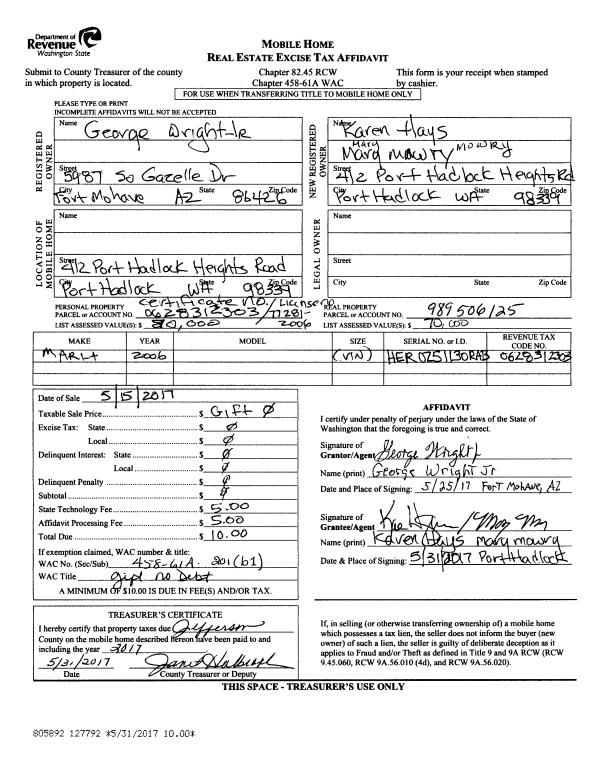 Department of
Revenue
Washington State
MOBILE HOME
REAL ESTATE EXCISE TAX AFFIDAVIT
Submit to County Treasurer of the county
in which property is located.
Chapter 82.45 RCW
Chapter 458-61A WAC
This form is your receipt when stamped
by cashier.
FOR USE WHEN TRANSFERRING TITLE TO MOBILE HOME ONLY
PLEASE TYPE OR PRINT
INCOMPLETE AFFIDAVITS WILL NOT BE ACCEPTED
REGISTERED OWNER
Name George Wright-Jr
Street 5987 So Gazelle Dr
City Fort Mohave State AZ Zip Code 86426
NEW REGISTERED OWNER
Name Karen Hays
Mary Mary mowry MOWRY
Street 412 Port Hadlock Heights Rd
City Port Hadlock State WA Zip Code 98339
LOCATION OF MOBILE HOME
Name
Street 412 Port Hadlock Heights Road
City Port Hadlock State WA Zip Code 98339
LEGAL OWNER
Name
Street
City State Zip Code
certificate no./License no
PERSONAL PROPERTY
PARCEL or ACCOUNT NO. 0628312303/77281-
LIST ASSESSED VALUE(S): $ 80,000 2006
REAL PROPERTY
PARCEL or ACCOUNT NO. 989506125
LIST ASSESSED VALUE(S): $ 70,000
MAKE YEAR MODEL SIZE SERIAL NO. or I.D. REVENUE TAX CODE NO.
MARLT 2006 (VIN) HER0251130RAB 0628312303
Date of Sale 5/15/2017
Taxable Sale Price $ Gift 0
Excise Tax: State $ 0
Local $ 0
Delinquent Interest: State $ 0
Local $ 0
Delinquent Penalty $ 0
Subtotal $ 0
State Technology Fee $ 5.00
Affidavit Processing Fee $ 5.00
Total Due $ 10.00
If exemption claimed, WAC number & title:
WAC No. (Sec/Sub) 458-61A 201(b1)
WAC Title gift no Debt
A MINIMUM OF $10.00 IS DUE IN FEE(S) AND/OR TAX.
AFFIDAVIT
I certify under penalty of perjury under the laws of the State of
Washington that the foregoing is true and correct.
Signature of
Grantor/Agent George Wright J
Name (print) George Wright Jr
Date and Place of Signing: 5/25/17 Fort Mohave, AZ
Signature of
Grantee/Agent
Name (print) Karen Hays mary mowry
Date & Place of Signing: 5/31/2017 Port Hadlock
TREASURER'S CERTIFICATE
I hereby certify that property taxes due Jefferson
County on the mobile home described hereon have been paid to and
including the year 2017
5/31/2017
Date County Treasurer or Deputy
If, in selling (or otherwise transferring ownership of) a mobile home
which possesses a tax lien, the seller does not inform the buyer (new
owner) of such a lien, the seller is guilty of deliberate deception as it
applies to Fraud and/or Theft as defined in Title 9 and 9A RCW (RCW
9.45.060, RCW 9A.56.010 (4d), and RCW 9A.56.020).
THIS SPACE - TREASURER'S USE ONLY
805892 127792 *5/31/2017 10.00*